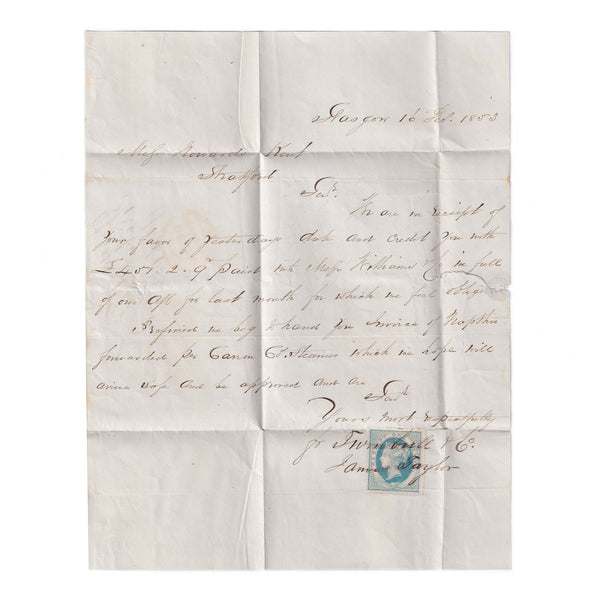 Glasgow 16 Feb. 1853
Messrs Howards & Kent
Stratford
Sirs
We are in receipt of
Your favor of Yesterdays date and credit you with
£451.2.9 paid into Messrs Williams &Co in full
of our a/c for last month for which we feel obliged
Inclosed we beg to hand you Invoice of Naptha
forwarded per Carron Co. Steamer which we hope will
arrive safe and be approved and are
Sirs
Yours most respectfully
pr Turnbull & Co.
James Taylor